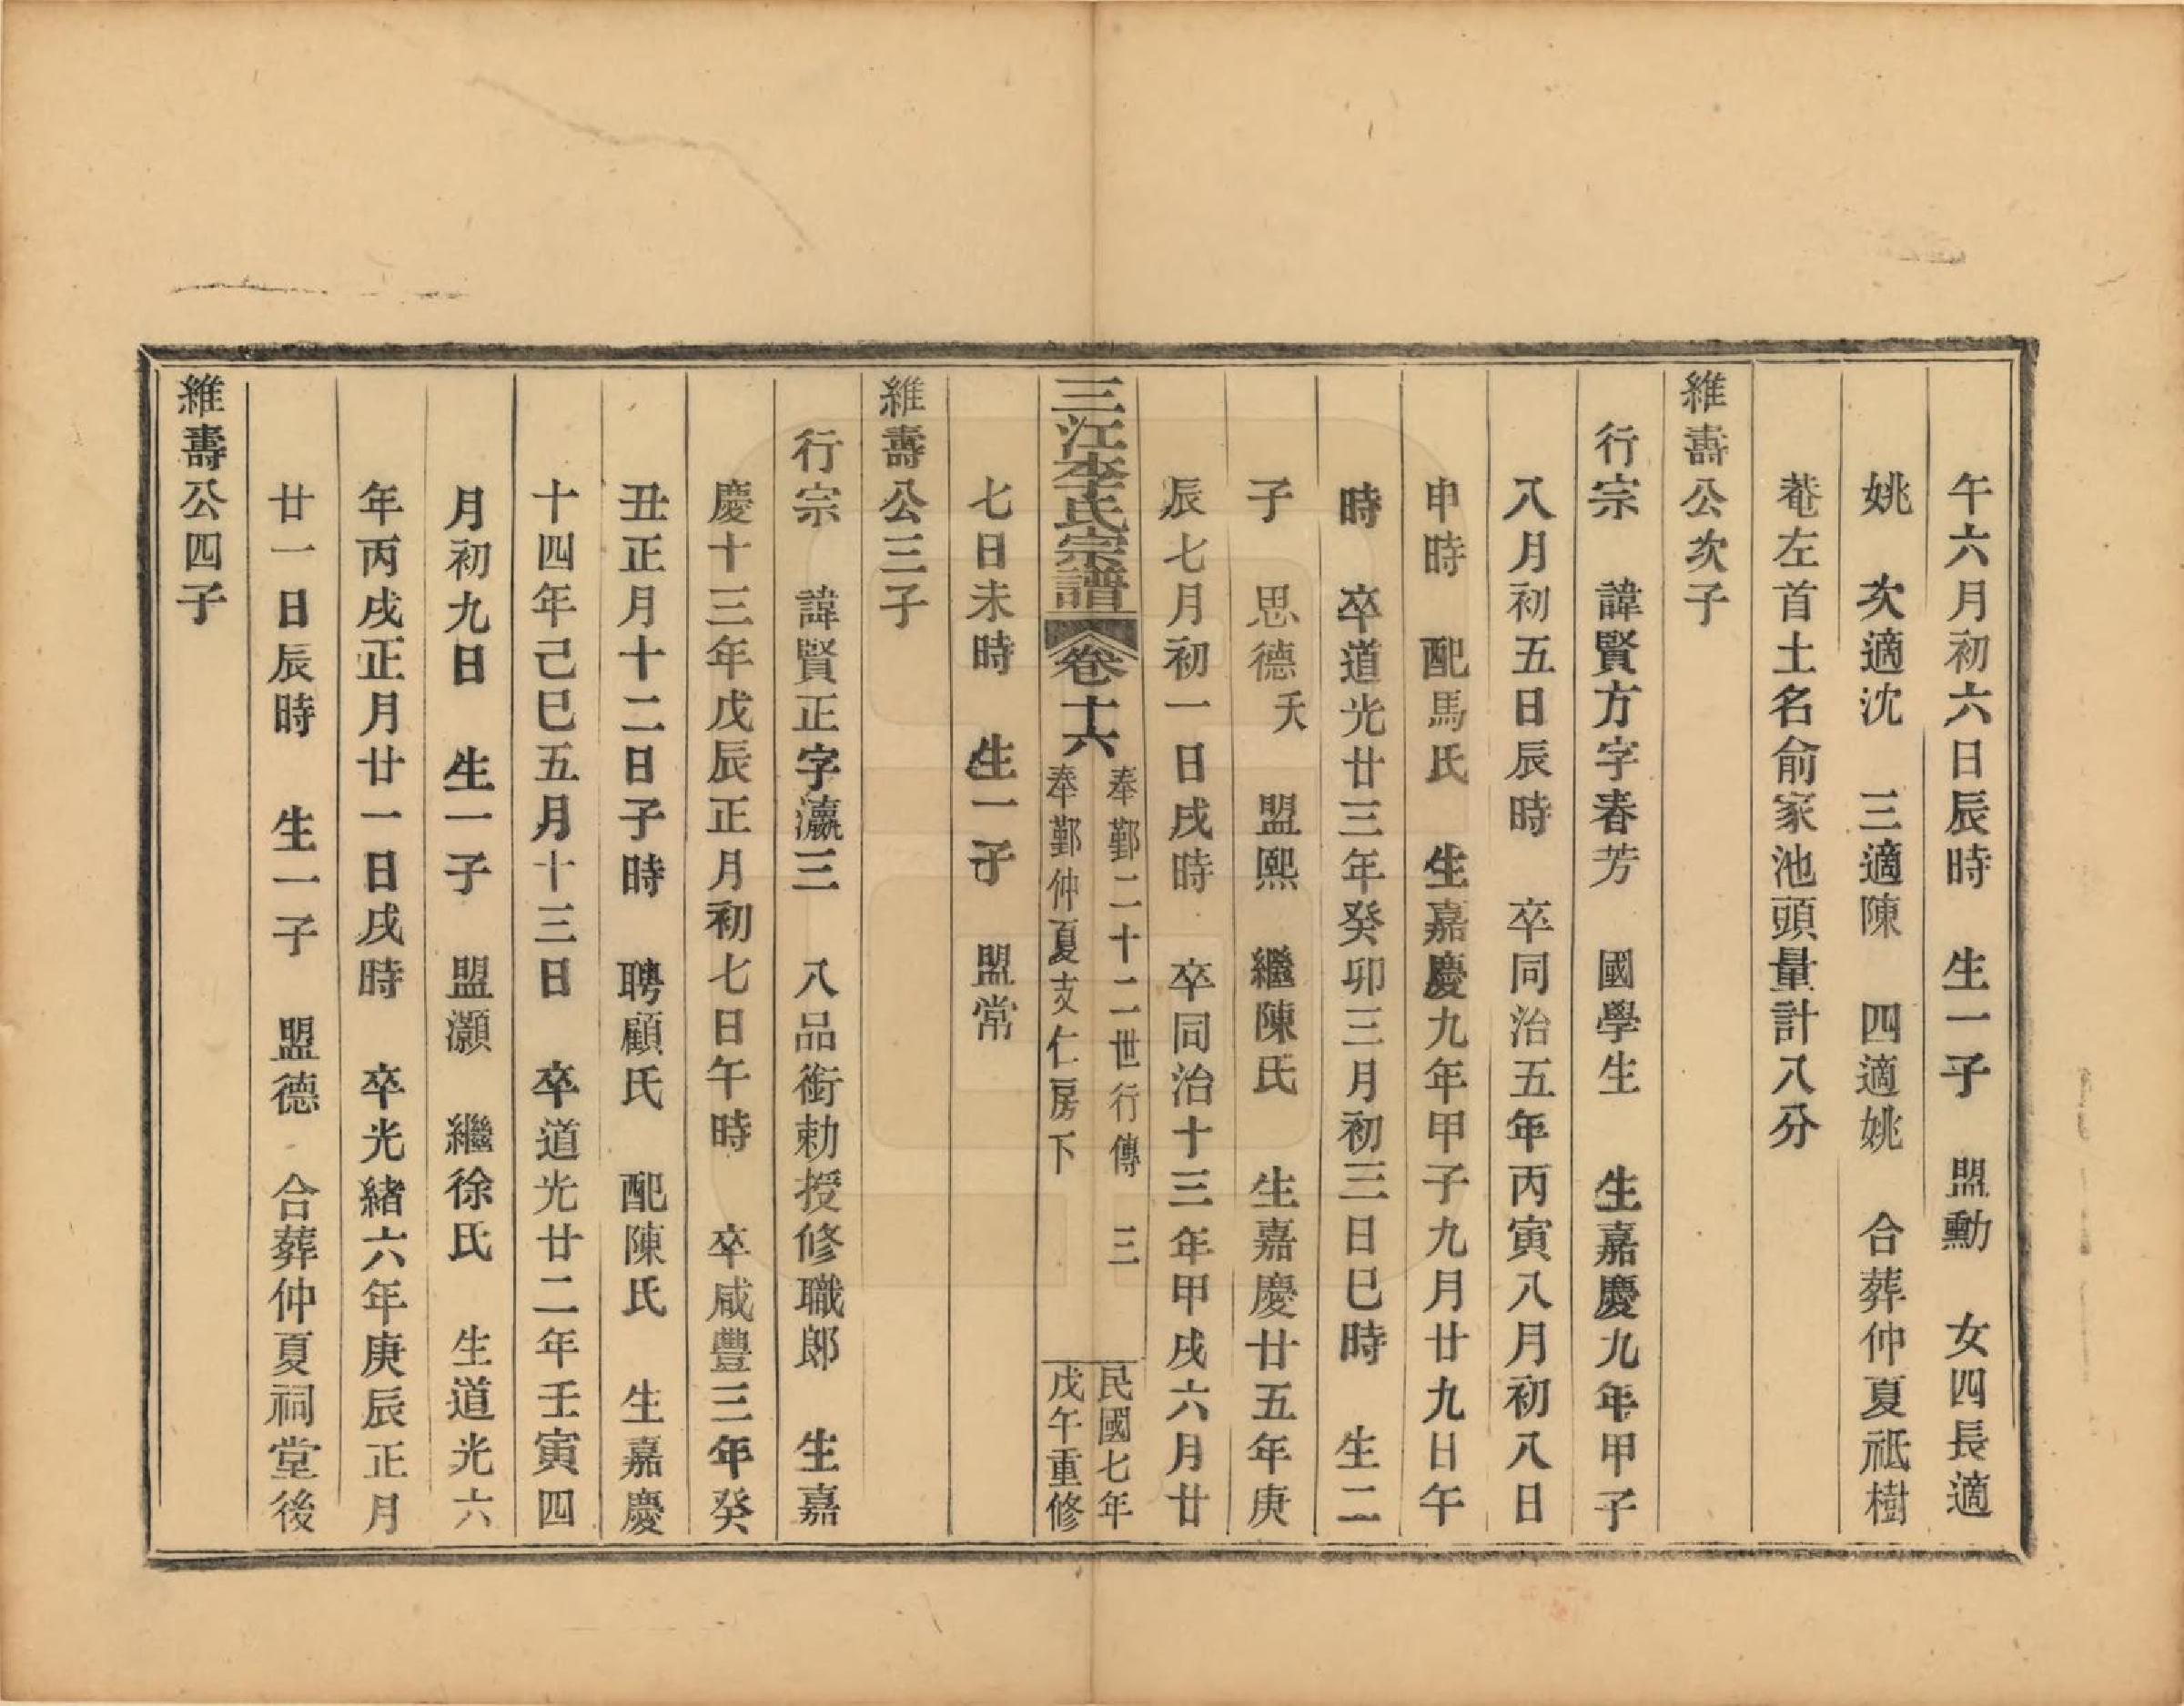 午六月初六日辰時　生一子　盟勳　女四長適
姚　次適沈　三適陳　四適姚　合葬仲夏祗樹
菴左首土名俞家池頭量計八分
維壽公次子
行宗　諱賢方字春芳　國學生　生嘉慶九年甲子
八月初五日辰時　卒同治五年丙寅八月初八日
申時　配馬氏　生嘉慶九年甲子九月廿九日午
時　卒道光廿三年癸卯三月初三日巳時　生二
子　思德夭　盟熙　繼陳氏　生嘉慶廿五年庚
辰七月初一日戌時　卒同治十三年甲戌六月廿
七日未時　生一子　盟常
三江李氏宗譜　卷十六　奉鄞二十二世行傳　三
奉鄞仲夏支仁房下
民國七年
戊午重修
維壽公三子
行宗　諱賢正字瀛三　八品銜勅授修職郎　生嘉
慶十三年戊辰正月初七日午時　卒咸豐三年癸
丑正月十二日子時　聘顧氏　配陳氏　生嘉慶
十四年己巳五月十三日　卒道光廿二年壬寅四
月初九日　生一子　盟灝　繼徐氏　生道光六
年丙戌正月廿一日戌時　卒光緒六年庚辰正月
廿一日辰時　生一子　盟德　合葬仲夏祠堂後
維壽公四子